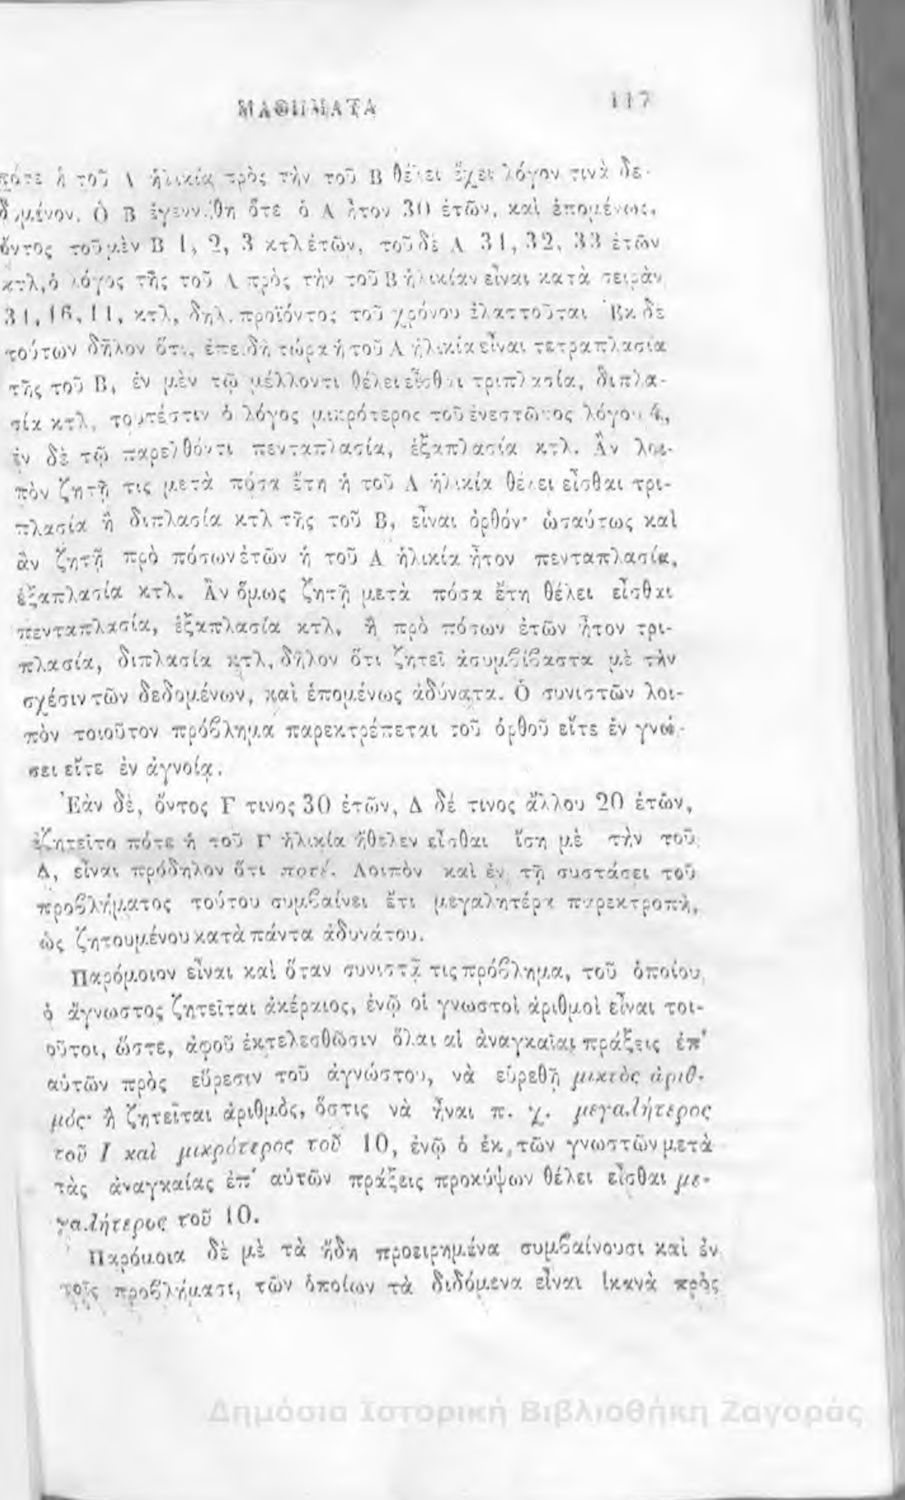 ΜΑΘΗΜΑΤΑ 117
πότε ἡ τοῦ Α ἡλικία πρὸς τὴν τοῦ Β θέλει ἔχει λόγον τινὰ δε-
δομένον. Ὁ Β ἐγεννήθη ὅτε ὁ Α ἦτον 30 ἐτῶν, καὶ ἐπομένως,
ὄντος τοῦ μὲν Β 1, 2, 3 κτλ ἐτῶν, τοῦ δὲ Α 31, 32, 33 ἐτῶν
κτλ, ὁ λόγος τῆς τοῦ Α πρὸς τὴν τοῦ Β ἡλικίαν εἶναι κατὰ σειρὰν
31, 16, 11, κτλ, δηλ. προϊόντος τοῦ χρόνου ἐλαττοῦται Ἐκ δὲ
τούτων δῆλον ὅτι, ἐπειδὴ τώρα ἡ τοῦ Α ἡλικία εἶναι τετραπλασία
τῆς τοῦ Β, ἐν μὲν τῷ μέλλοντι θέλει εἶσθαι τριπλασία, διπλα-
σία κτλ, τουτέστιν ὁ λόγος μικρότερος τοῦ ἐνεστῶτος λόγου 4,
ἐν δὲ τῷ παρελθόντι πενταπλασία, ἑξαπλασία κτλ. Ἂν λοι-
πὸν ζητῇ τις μετὰ πόσα ἔτη ἡ τοῦ Α ἡλικία θέλει εἶσθαι τρι-
πλασία ἢ διπλασία κτλ τῆς τοῦ Β, εἶναι ὀρθόν· ὡσαύτως καὶ
ἂν ζητῇ πρὸ πόσων ἐτῶν ἡ τοῦ Α ἡλικία ἦτον πενταπλασία,
ἑξαπλασία κτλ. Ἂν ὅμως ζητῇ μετὰ πόσα ἔτη θέλει εἶσθαι
πενταπλασία, ἑξαπλασία κτλ, ἢ πρὸ πόσων ἐτῶν ἦτον τρι-
πλασία, διπλασία κτλ, δῆλον ὅτι ζητεῖ ἀσυμβίβαστα μὲ τὴν
σχέσιν τῶν δεδομένων, καὶ ἑπομένως ἀδύνατα. Ὁ συνιστῶν λοι-
πὸν τοιοῦτον πρόβλημα παρεκτρέπεται τοῦ ὀρθοῦ εἴτε ἐν γνώ-
σει εἴτε ἐν ἀγνοίᾳ.
Ἐὰν δὲ, ὄντος Γ τινος 30 ἐτῶν, Δ δέ τινος ἄλλου 20 ἐτῶν,
ἐζητεῖτο πότε ἡ τοῦ Γ ἡλικία ἤθελεν εἶσθαι ἴση μὲ τὴν τοῦ
Δ, εἶναι πρόδηλον ὅτι ποτέ. Λοιπὸν καὶ ἐν τῇ συστάσει τοῦ
προβλήματος τούτου συμβαίνει ἔτι μεγαλητέρα παρεκτροπὴ,
ὡς ζητουμένου κατὰ πάντα ἀδυνάτου.
Παρόμοιον εἶναι καὶ ὅταν συνιστᾷ τις πρόβλημα, τοῦ ὁποίου
ὁ ἄγνωστος ζητεῖται ἀκέραιος, ἐνῷ οἱ γνωστοὶ ἀριθμοὶ εἶναι τοι-
οῦτοι, ὥστε, ἀφοῦ ἐκτελεσθῶσιν ὅλαι αἱ ἀναγκαῖαι πράξεις ἐπ'
αὐτῶν πρὸς εὕρεσιν τοῦ ἀγνώστου, νὰ εὑρεθῇ μικτὸς ἀριθ-
μός· ἢ ζητεῖται ἀριθμὸς, ὅστις νὰ ἦναι π. χ. μεγαλήτερος
τοῦ 1 καὶ μικρότερος τοῦ 10, ἐνῷ ὁ ἐκ τῶν γνωστῶν μετὰ
τὰς ἀναγκαίας ἐπ' αὐτῶν πράξεις προκύψων θέλει εἶσθαι με-
γαλήτερος τοῦ 10.
Παρόμοια δὲ μὲ τὰ ἤδη προειρημένα συμβαίνουσι καὶ ἐν
τοῖς προβλήμασι, τῶν ὁποίων τὰ διδόμενα εἶναι ἱκανὰ πρὸς
Δημόσια Ιστορική Βιβλιοθήκη Ζαγοράς